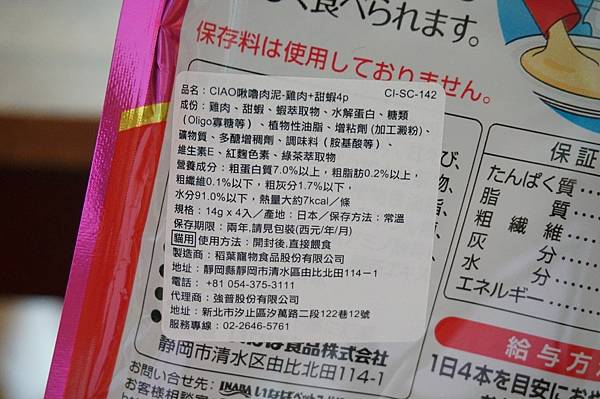 く食べられます。
保存料は使用しておりません。
品名：CIAO啾嚕肉泥-雞肉+甜蝦4p CI-SC-142
成份：雞肉、甜蝦、蝦萃取物、水解蛋白、糖類
(Oligo寡糖等)、植物性油脂、增粘劑(加工澱粉)、
礦物質、多醣增稠劑、調味料（胺基酸等）、
維生素E、紅麴色素、綠茶萃取物
營養成分：粗蛋白質7.0%以上，粗脂肪0.2%以上，
粗纖維0.1%以下，粗灰分1.7%以下，
水分91.0%以下，熱量大約7kcal／條
規格：14g x 4入／產地：日本／保存方法：常溫
保存期限：兩年,請見包裝(西元/年/月)
貓用 使用方法：開封後,直接餵食
製造商：稻葉寵物食品股份有限公司
地址：靜岡縣靜岡市清水區由比北田114－1
電話： +81 054-375-3111
代理商：強普股份有限公司
地址：新北市汐止區汐萬路二段122巷12號
服務專線：02-2646-5761
保証
たんぱく質
脂質
粗繊維
灰分
水分
エネルギー
給与方
1日4本を目安にお
食品株式会社
静岡市清水区由比北田114-1
お問い合せ先
お客様相談
INABA いなばペット